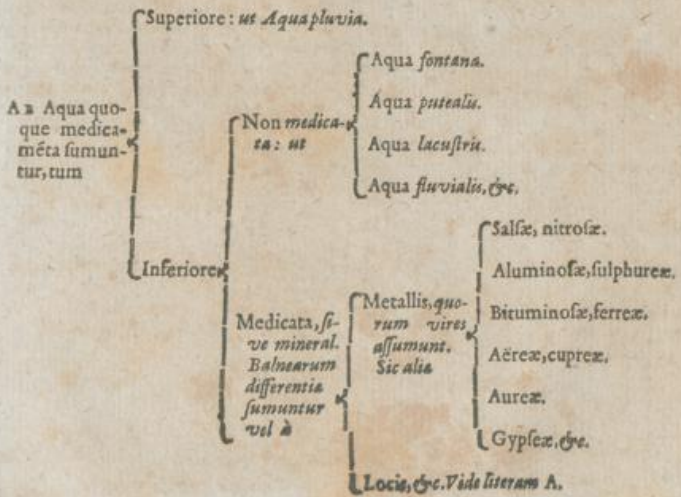 AB Aqua quo-
que medica-
mēta ſumun-
tur, tum
Superiore: ut Aqua pluvia.
Inferiore
Non medica-
ta: ut
Aqua fontana.
Aqua putealis.
Aqua lacuſtris.
Aqua fluvialis, &c.
Medicata, ſi-
ve mineral.
Balnearum
differentia
ſumuntur
vel à
Metallis, quo-
rum vires
aſſumunt.
Sic alia
Salſæ, nitroſæ.
Aluminoſæ, ſulphureæ.
Bituminoſæ, ferreæ.
Aëreæ, cupreæ.
Aureæ.
Gypſeæ, &c.
Locis, &c. Vide literam A.